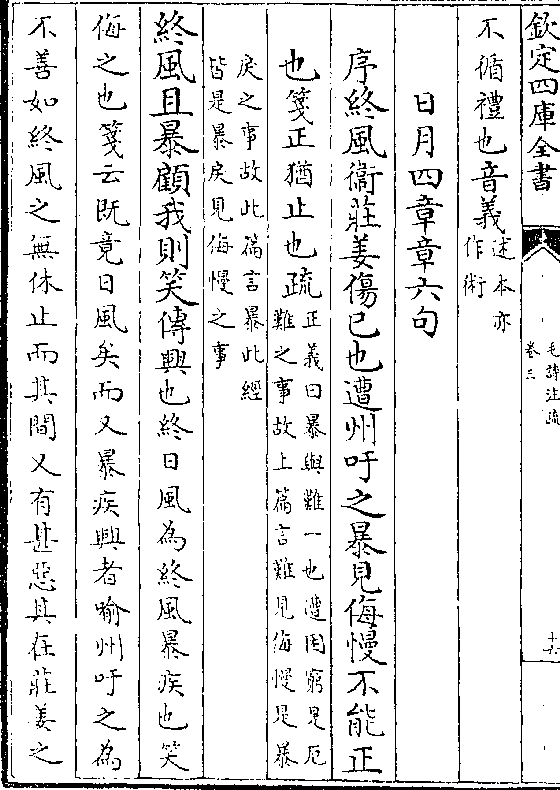 欽定四庫全書
毛詩注疏
卷三
十六
不循禮也音義述本亦
作術
日月四章章六句
序終風衞莊姜傷已也遭州吁之暴見侮慢不能正
也箋正猶止也疏正義曰暴與難一也遭困窮是厄
難之事故上篇言難見侮慢是暴
戾之事故此篇言暴此經
皆是暴戾見侮慢之事
終風且暴顧我則笑傳興也終日風為終風暴疾也笑
侮之也箋云既竟日風矣而又暴疾興者喻州吁之為
不善如終風之無休止而其間又有甚惡其在莊姜之